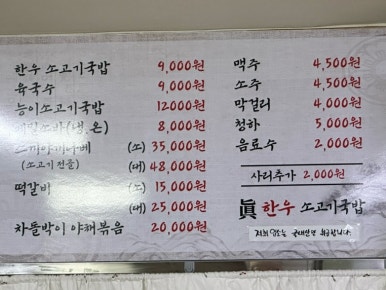 한우 소고기국밥 9,000원
육국수 9,000원
능이소고기국밥 12000원
8,000원
(소) 35,000원
(소고기전골) (대) 48,000원
떡갈비 (소) 15,000원
(대) 25,000원
차돌박이 야채볶음 20,000원
맥주 4,500원
소주 4,500원
막걸리 4,000원
청하 5,000원
음료수 2,000원
사리추가 2,000원
眞 한우 소고기국밥
저희 업소는 취급합니다.